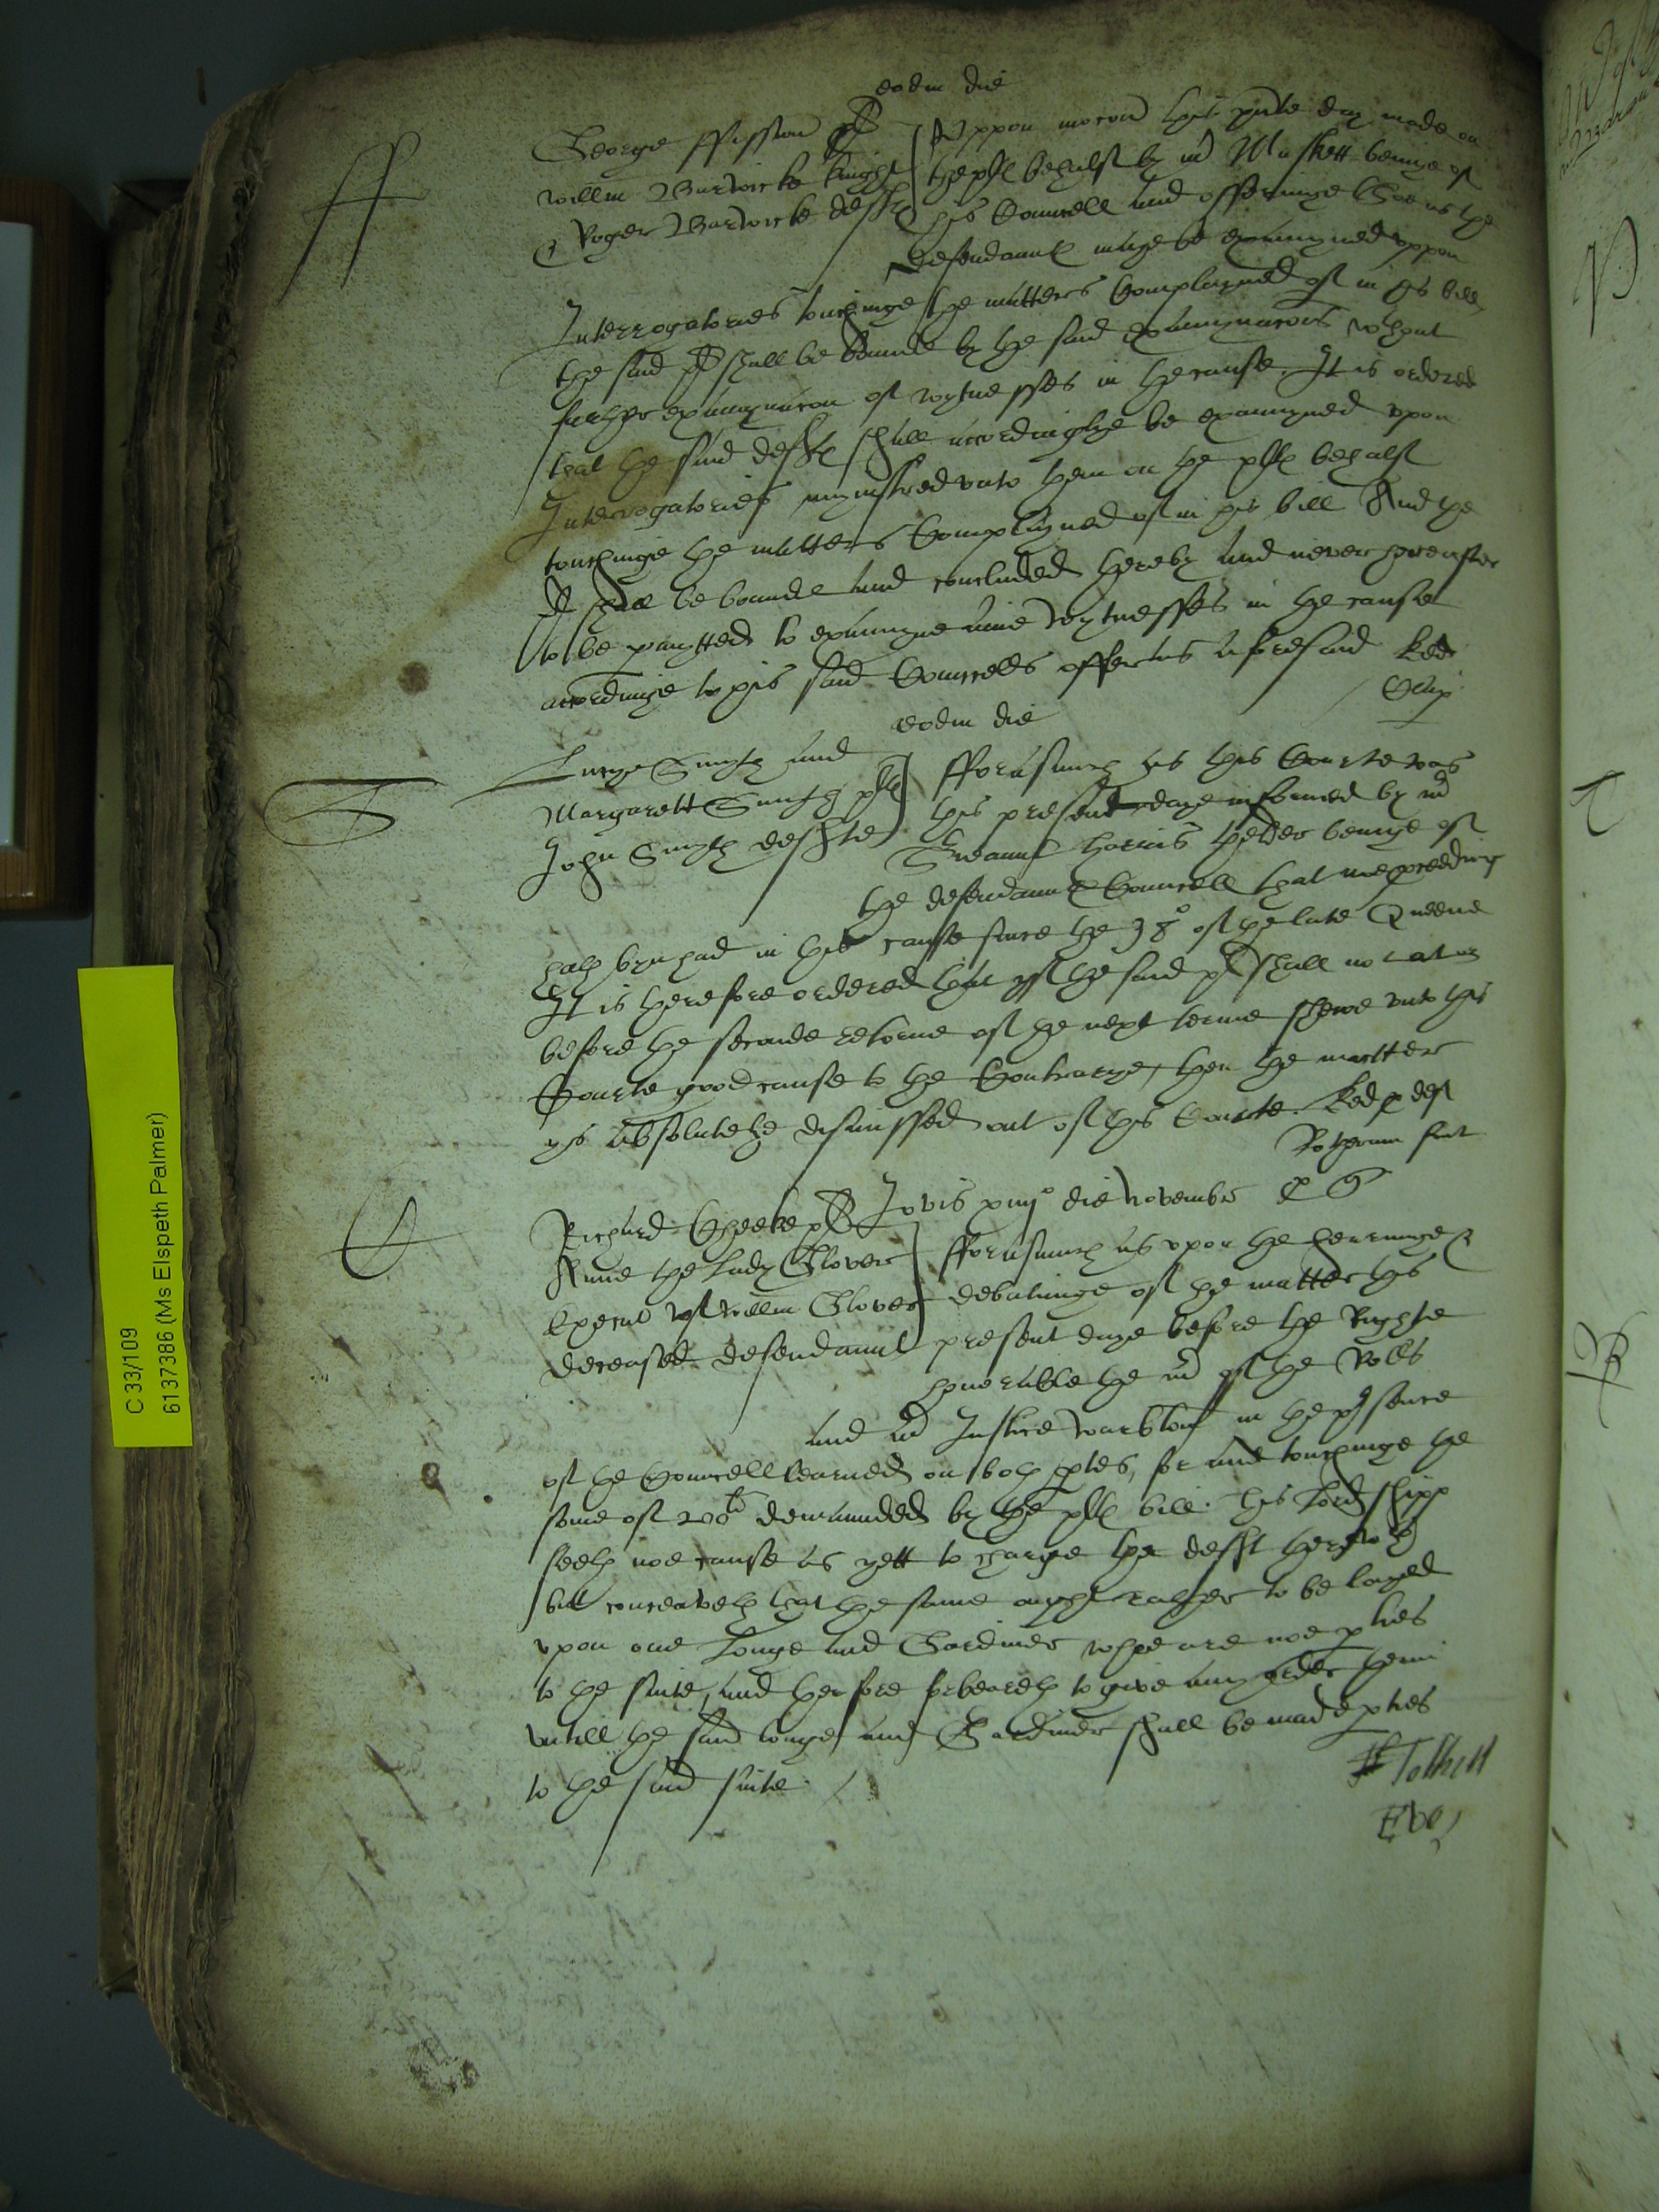 eodm die
ff
George ffisston pl
Willm Barwicke knight
& Roger Barwicke defts
Uppon mocon this pnte day made on
the pls behalf by mr Muskett beinge of
his Councell and offeringe that as the
defendauntes maye be examyned uppon
Interrogatories touchinge the matters Complayned of in his bill
the said pl shall be bounde by the said examynacons wthout
further examynacon of wytnesses in the cause. It is ordered
that the said defts shall accordinglye be examyned upon
Interrogatories mynistred unto them on the pls behalf
touchinge the matters Complayned of in his bill And the
pl shall be bounde and concluded thereby and never hereafter
to be pmytted to examyne anie wytnesses in the cause
accordinge to his said Councells offer as aforesaid
eodm die
S
Lucye Smyth and
Margarett Smyth pls
John Smyth defte
fforasmuch as this Courte was
this present daye informed by mr
Serjaunt Harris thelder beinge of
the defendauntes Councell that noe pceeding
hath byn had in this cause since the 38o of the late Queene
It is therefore ordered that yf the said pl shall not at or
before the seconde retorne of the next terme shewe unto this
Courte good cause to the Contrarye, then the matter
ys absolutelye dismissed out of this Courte. Red p def
C
Jovis die Novembr
Richard Cheeke pl
Anne the Lady Glover
execut of Willm Glover
deceased defendaunt
fforasmuch as upon the hearinge &
debatinge of the matter this
present daye before the Righte
honorable the mr of the Rolls
and mr Justice Warbton in the psence
of the Councell learned on both ptes, for and touchinge the
some of 200li demaunded by the pls bill. his Lordshipp
seeth noe cause as yett to charge the deft therewth
but conceaveth that the same ought rather to be layed
upon one Longe and Gardiner whoe are noe pties
to the suite, and therfore forbeareth to give any order therin
untill the said Longe and Gardiner shall be made pties
to the said suite.
Tothill
C 33/109
6137386 (Ms Elspeth Palmer)